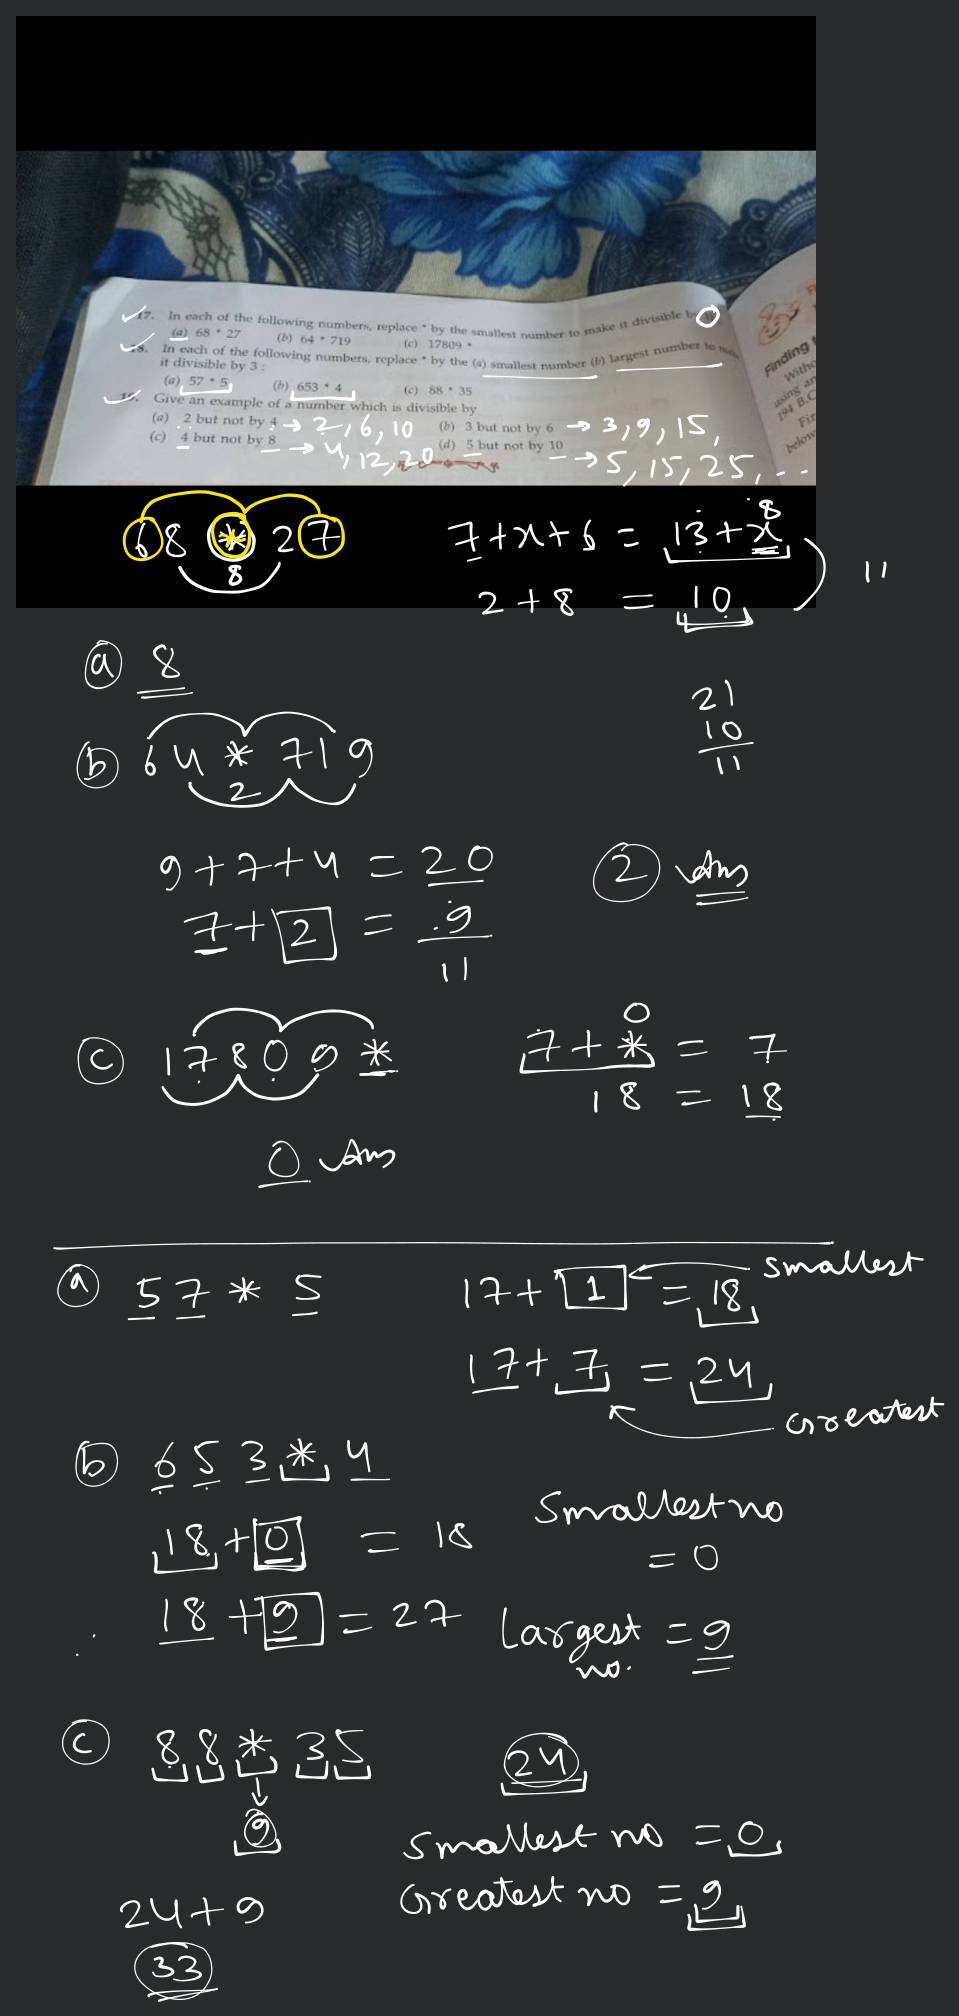 17. In each of the following numbers, replace * by the smallest number to make it divisible by
(a) 68 * 27 (b) 64 * 719 (c) 17809 *
18. In each of the following numbers, replace * by the (a) smallest number (b) largest number to
it divisible by 3 :
(a) 57 * 5 (b) 653 * 4 (c) 88 * 35
Give an example of a number which is divisible by
(a) 2 but not by 4 → 2, 6, 10 (b) 3 but not by 6 → 3, 9, 15,
(c) 4 but not by 8 → 4, 12, 20 (d) 5 but not by 10 → 5, 15, 25, ...
Finding
using an
194 B.C
below
68 * 27 7+x+6 = 13+x 8
8 2+8 = 10 11
(a) 8
21
10
11
(b) 64 * 719
2
9+7+4 = 20 (2) Ans
7+2 = 9
11
0
(c) 17809 * 7+* = 7
18 = 18
0 Ans
(a) 57 * 5 17+1 = 18 Smallest
17+7 = 24
Greatest
(b) 653 * 4
18+0 = 18 Smallest no
= 0
18+9 = 27 Largest = 9
no.
(c) 88 * 35 24
9
Smallest no = 0
Greatest no = 9
24+9
33